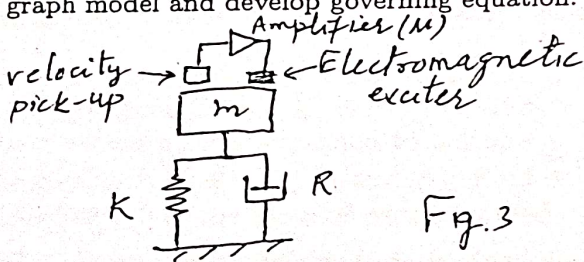 graph model and develop governing equation.
Amplifier (M)
velocity
pick-up
Electromagnetic
exciter
m
K
R
Fig.3